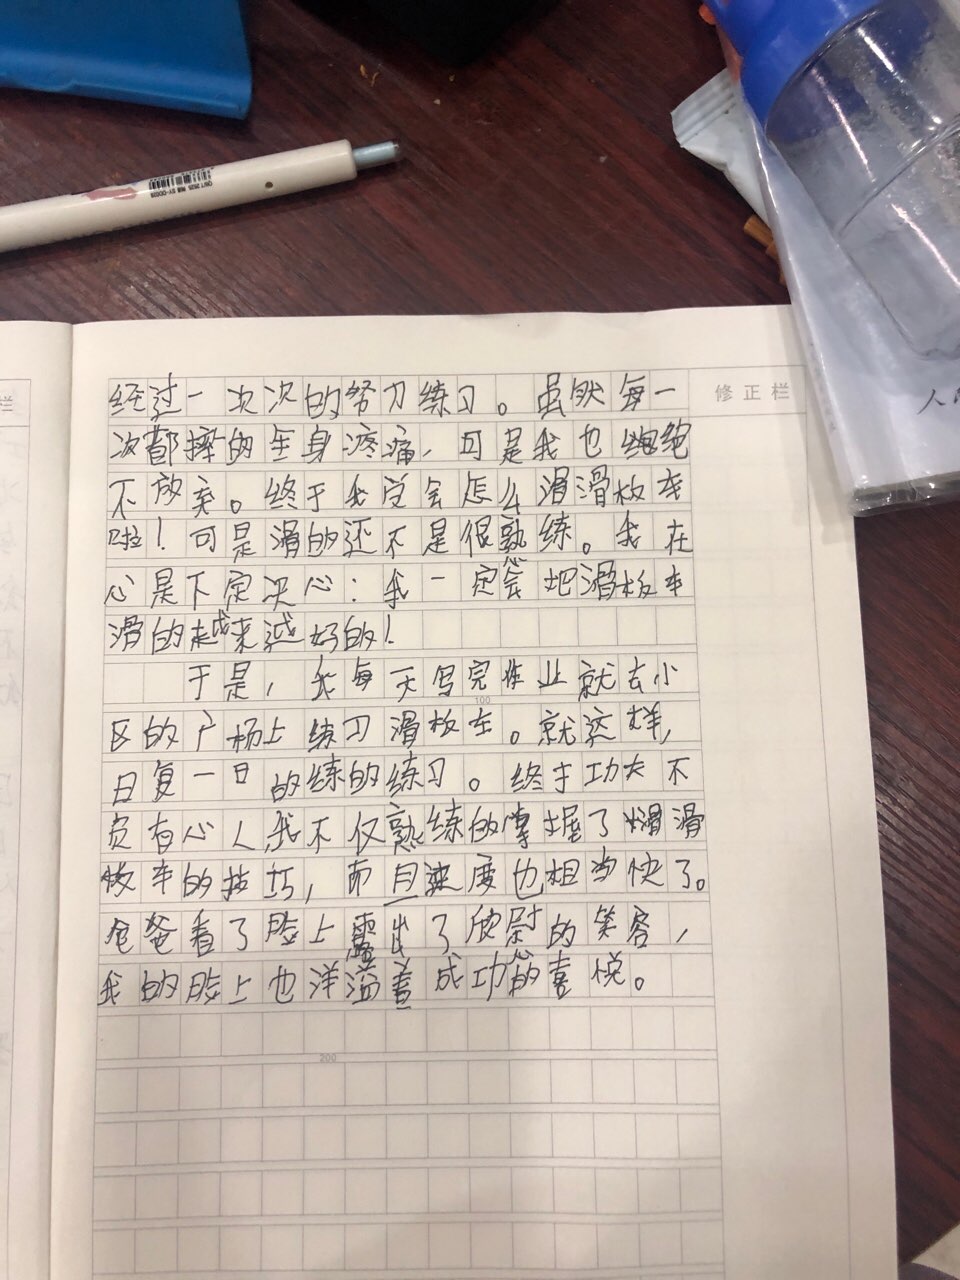 修正栏
经过一次次的努力练习。虽然每一
次都摔的全身疼痛，可是我也绝
不放弃。终于我学会怎么滑滑板车
啦！可是滑的还不是很熟练。我在
心是下定决心：我一定会把滑板车
滑的越来越好的！
于是，我每天写完作业就去小
100
区的广场上练习滑板车。就这样，
日复一日的练的练习。终于功夫不
负有心人,我不仅熟练的掌握了滑滑
板车的技巧，而且速度也相当快了。
爸爸看了脸上露出了欣慰的笑容，
我的脸上也洋溢着成功的喜悦。
200